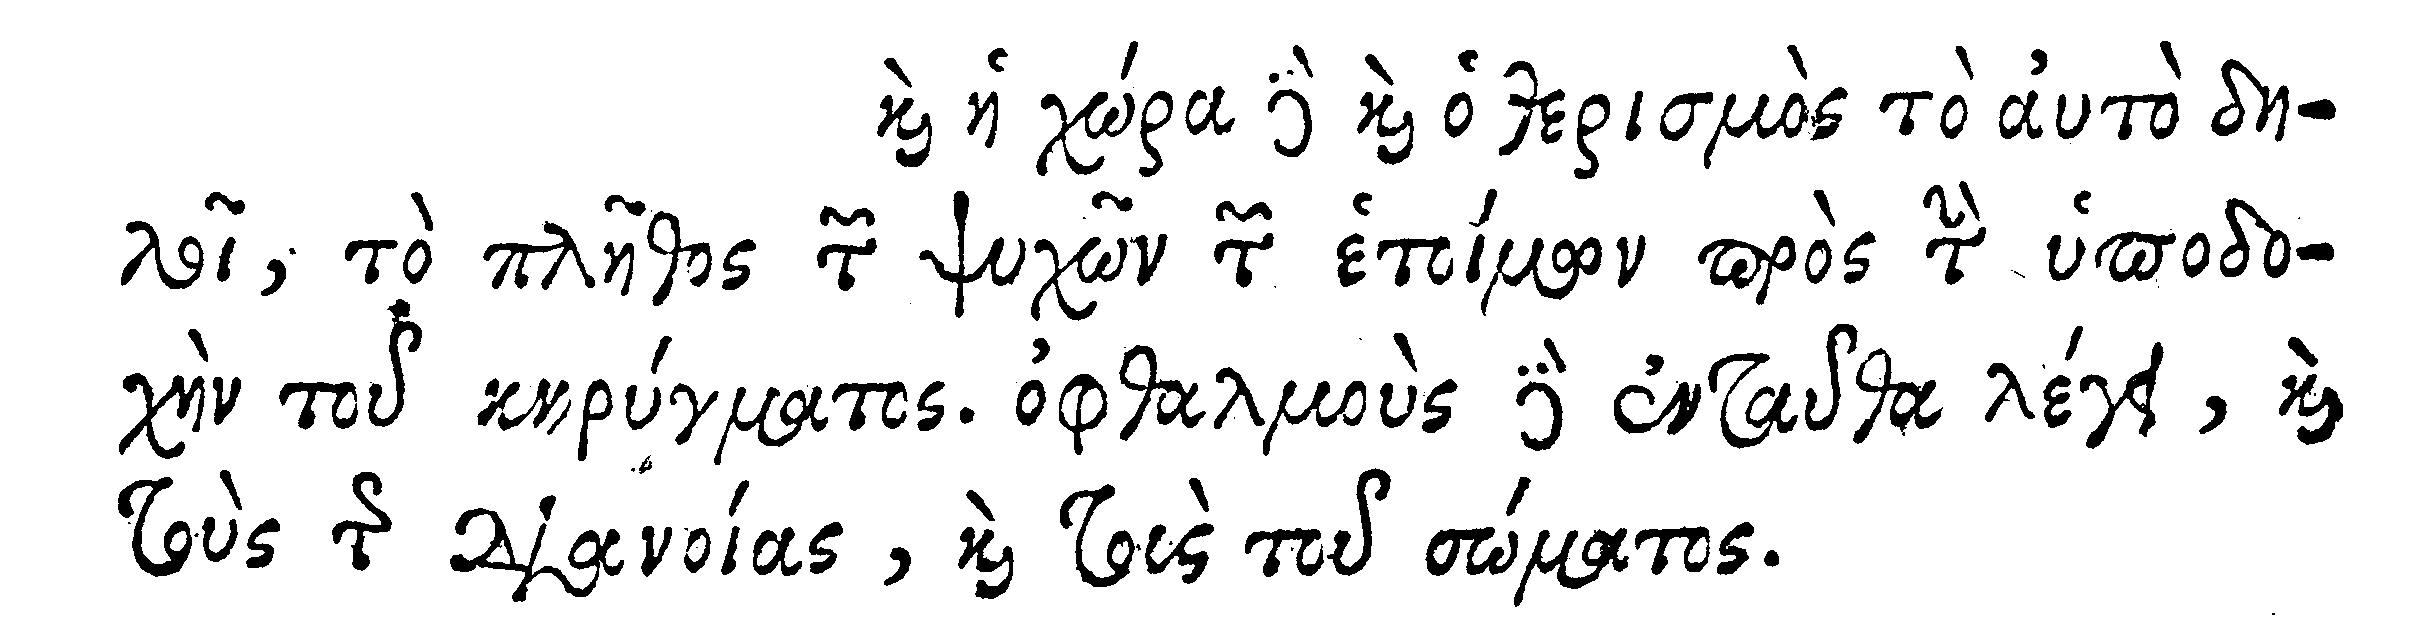 καὶ ἡ χώρα δὲ καὶ ὁ θερισμὸς τὸ αὐτὸ δη-
λοῖ, τὸ πλῆθος τῶν ψυχῶν τῶν ἑτοίμων πρὸς τὴν ὑποδο-
χὴν τοῦ κηρύγματος. ὀφθαλμοὺς δὲ ἐνταῦθα λέγει, καὶ
τοὺς τῆς διανοίας, καὶ τοὺς τοῦ σώματος.